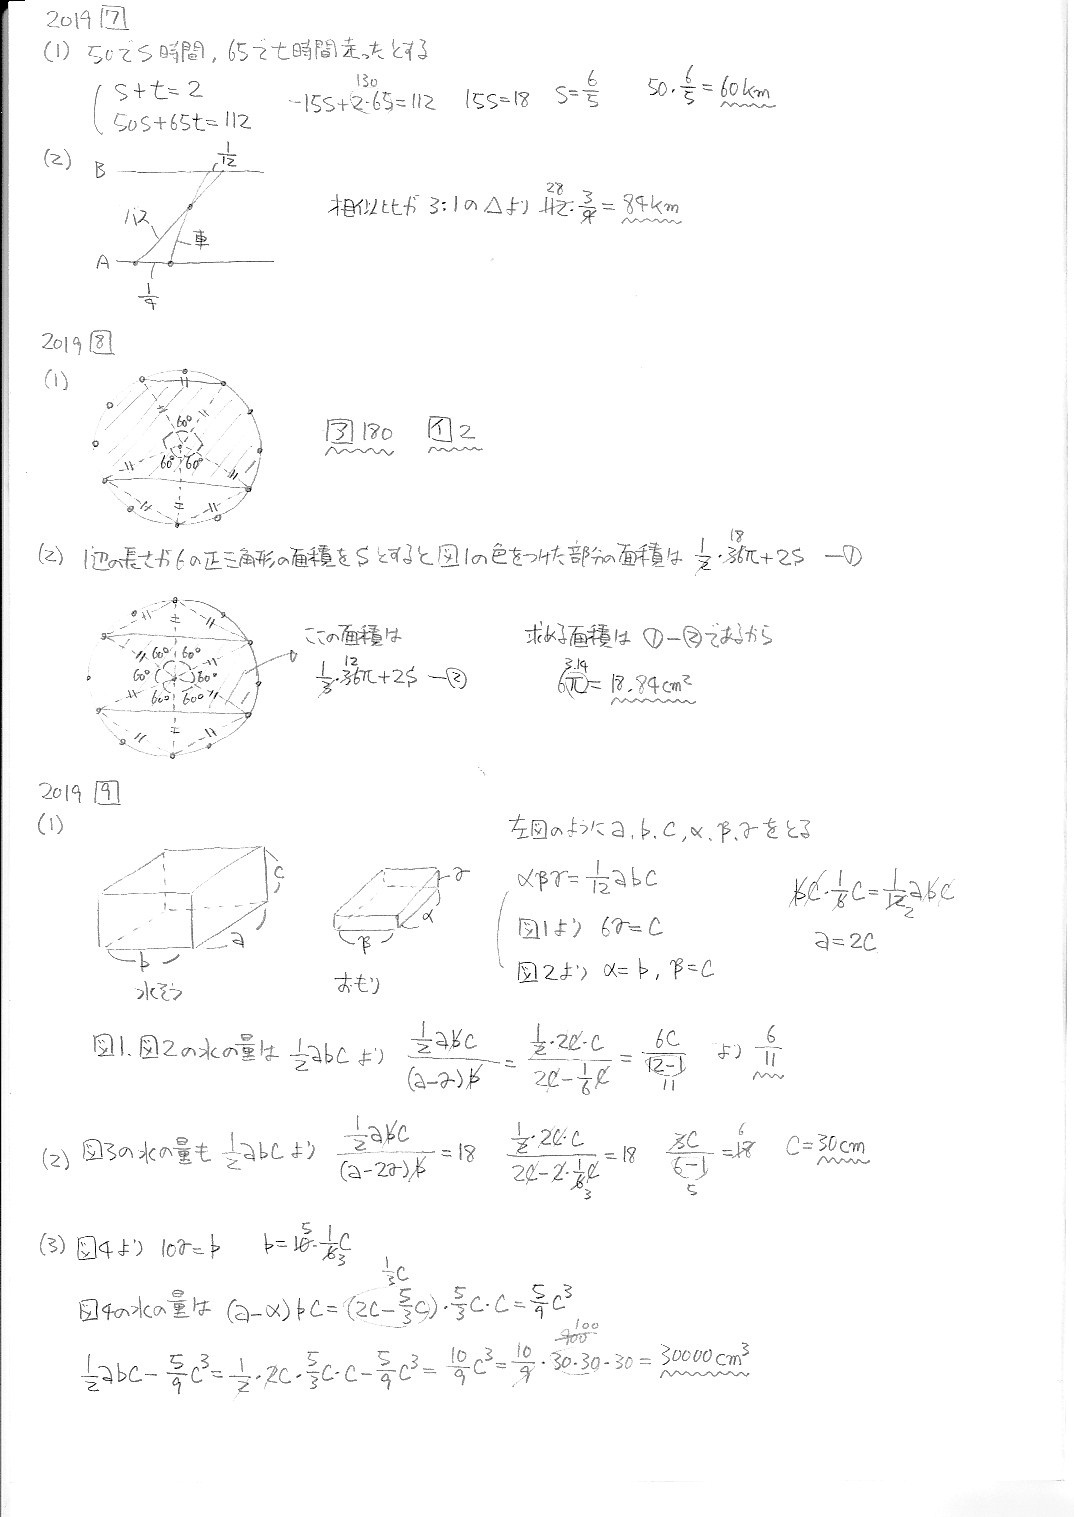 2019 7
(1) 50でS時間, 65でt時間走ったとする
S+t=2
50S+65t=112
-15S+2・65=112 130
15S=18
S=6/5
50・6/5=60km
(2)
B
1/12
バス
車
A
1/4
相似比が3:1の△より 112・3/4=84km 28
2019 8
(1)
60°
60° 60°
ア 180
イ 2
(2) 1辺の長さが6の正三角形の面積をSとすると図1の色をつけた部分の面積は 1/2・36π+2S ―① 18
60° 60°
60° 60°
60° 60°
ここの面積は
1/3・36π+2S ―② 12
求める面積は ①-②であるから
6π=18.84cm² 3.14
2019 9
(1)
c
a
b
水そう
γ
α
β
おもり
左図のようにa,b,c,α,β,γをとる
αβγ=1/12abc
図1より 6γ=c
図2より α=b, β=c
bc・1/6c=1/12abc 2
a=2c
図1.図2の水の量は 1/2abcより (1/2abc)/((a-γ)b)=(1/2・2c・c)/(2c-1/6c)=6c/(12-1) 11 より 6/11
(2) 図3の水の量も 1/2abcより (1/2abc)/((a-2γ)b)=18 (1/2・2c・c)/(2c-2・1/6c)=18 3 3c/(6-1)=18 5 6 c=30cm
(3) 図4より 10γ=b b=10・1/6c 5 3
1/3c
図4の水の量は (a-α)bc=(2c-5/3c)・5/3c・c=5/9c³
1/2abc-5/9c³=1/2・2c・5/3c・c-5/9c³=10/9c³=10/9・30・30・30=30000cm³ 900 100